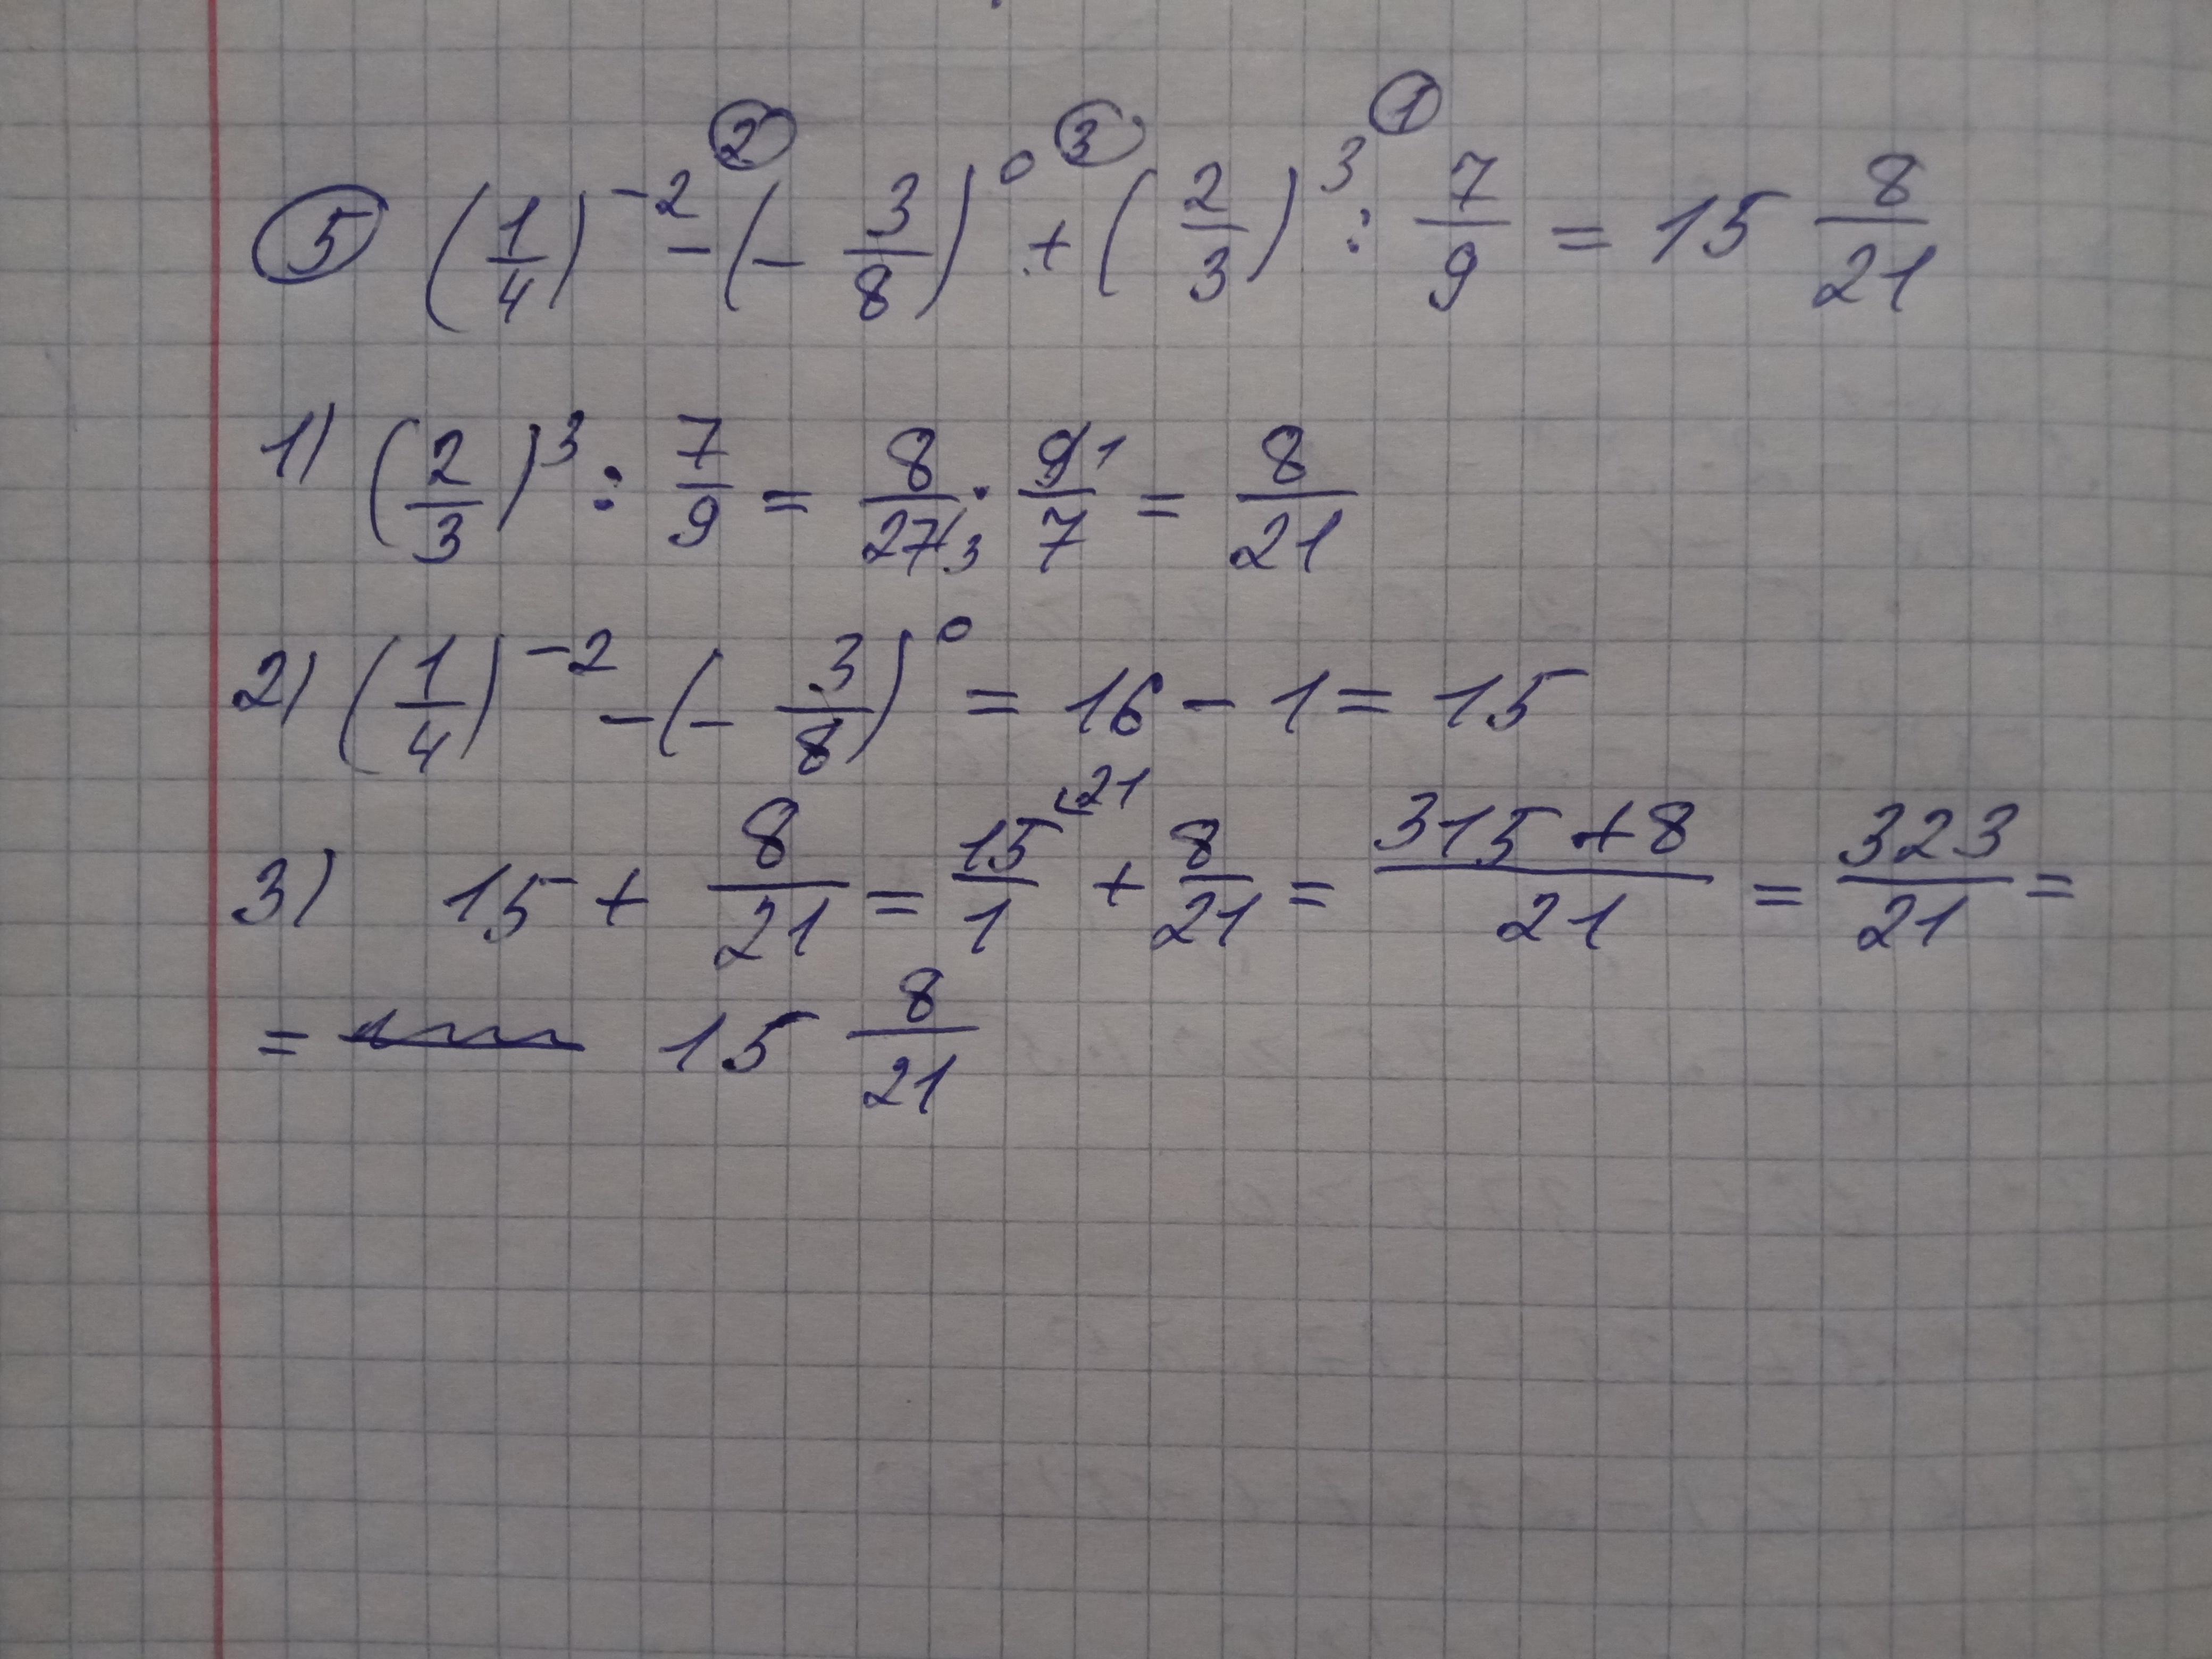 ⑤ (1/4)^-2 ② - (- 3/8)^0 ③ + (2/3)^3 ① : 7/9 = 15 8/21
1) (2/3)^3 : 7/9 = 8/27 3 · 9 1/7 = 8/21
2) (1/4)^-2 - (- 3/8)^0 = 16 - 1 = 15
3) 15 + 8/21 = 15/1 ^21 + 8/21 = 315 + 8/21 = 323/21 =
= 15 8/21